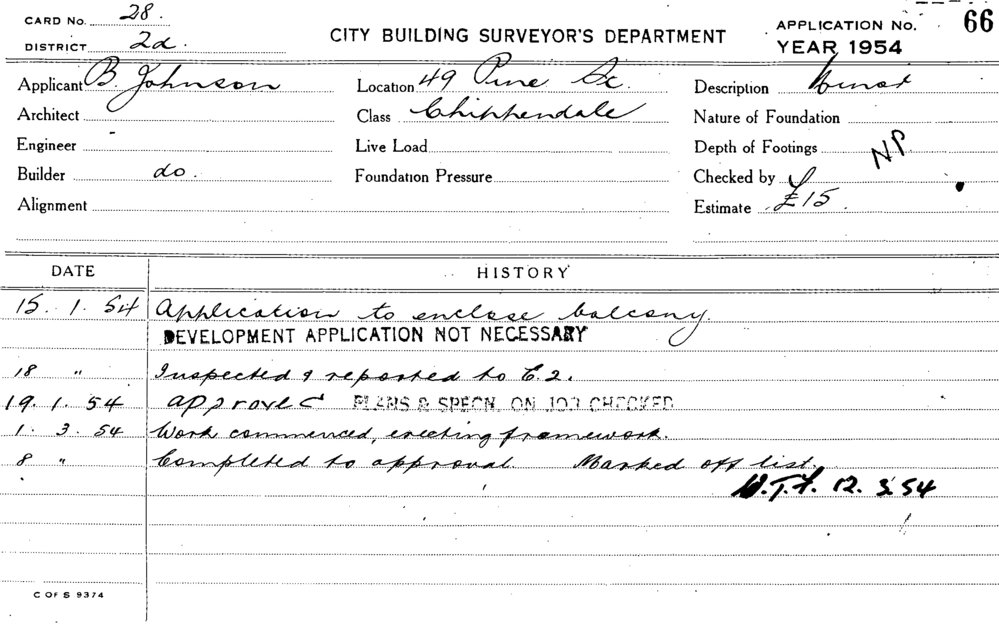 CARD No. 28.
DISTRICT 2d.
CITY BUILDING SURVEYOR'S DEPARTMENT
APPLICATION No. 66
YEAR 1954
Applicant B. Johnson
Architect
Engineer -
Builder do.
Alignment
Location 49 Pine St.
Class Chippendale
Live Load
Foundation Pressure
Description Minor
Nature of Foundation
Depth of Footings
NP
Checked by
Estimate £15.
DATE HISTORY
15. 1. 54 Application to enclose balcony
DEVELOPMENT APPLICATION NOT NECESSARY
18 " Inspected & reported to C.2.
19. 1. 54 approved PLANS & SPECN. ON JOB CHECKED
1. 3. 54 Work commenced, erecting framework.
8 " Completed to approval. Marked off list.
12. 3. 54
C OF S 9374